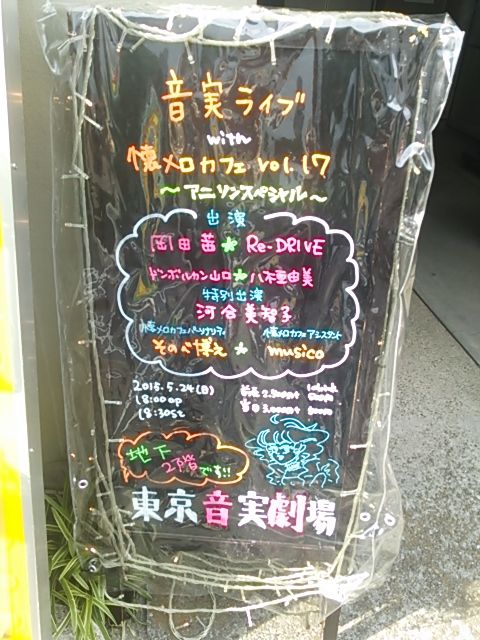 音実ライブ
with
懐メロカフェ vol.17
～アニソンスペシャル～
出演
岡田茜★Re-DRIVE
ドンボルカン山口★八木亜由美
特別出演
河合美智子
懐メロカフェパーソナリティ 懐メロカフェアシスタント
そのべ博之★musico
2015.5.24(日)
18:00op
18:30st
前売 2.500
当日 3.000
地下
2階です!!
東京音実劇場